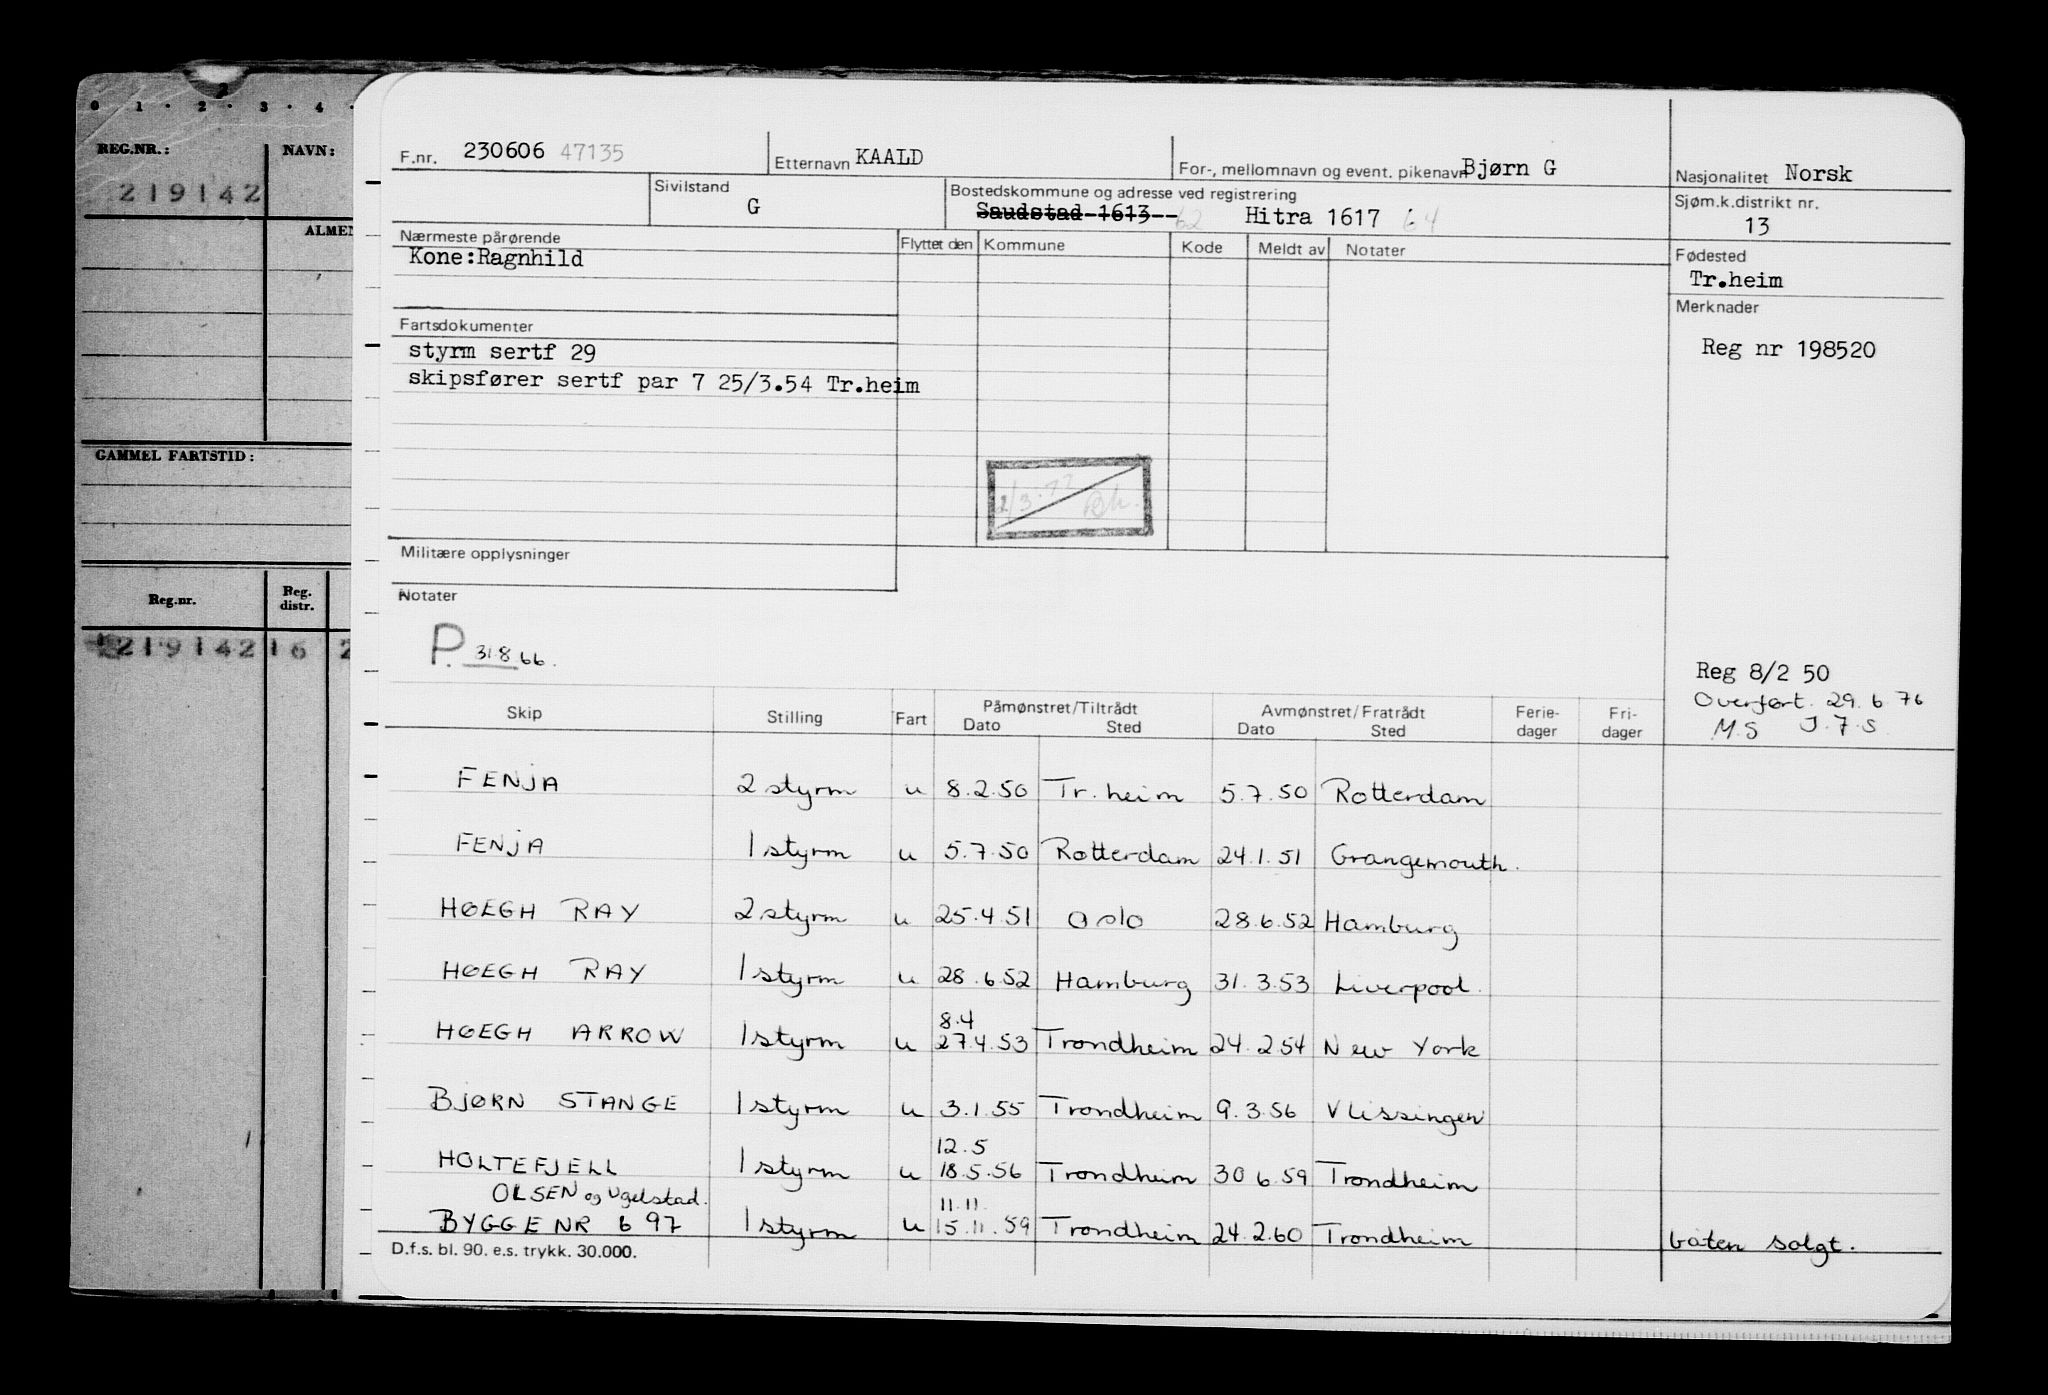 0 · 1 · 2 · 3 · 4 ·
2
REG.NR.:
NAVN:
219142
ALMEN
GAMMEL FARTSTID:
Reg.nr.
Reg. distr.
219142 16 2
F.nr. 230606 47135
Etternavn KAALD
For-, mellomnavn og event. pikenavn Bjørn G
Nasjonalitet Norsk
Sivilstand
G
Bostedskommune og adresse ved registrering
Saudstad 1613-- 62 Hitra 1617 64
Sjøm.k.distrikt nr.
13
Nærmeste pårørende
Kone:Ragnhild
Flyttet den Kommune Kode Meldt av Notater
Fødested
Tr.heim
Merknader
Reg nr 198520
Fartsdokumenter
styrm sertf 29
skipsfører sertf par 7 25/3.54 Tr.heim
2/3.77 Bh.
Militære opplysninger
Notater
P. 31.8 66.
Reg 8/2 50
Overført. 29.6.76
M.S J.F.S
Skip Stilling Fart Påmønstret/Tiltrådt Dato Sted Avmønstret/Fratrådt Dato Sted Ferie-dager Fri-dager
FENJA 2 styrm u 8.2.50 Tr.heim 5.7.50 Rotterdam
FENJA 1 styrm u 5.7.50 Rotterdam 24.1.51 Grangemouth.
HØEGH RAY 2 styrm u 25.4.51 Oslo 28.6.52 Hamburg
HØEGH RAY 1 styrm u 28.6.52 Hamburg 31.3.53 Liverpool.
8.4
HØEGH ARROW 1 styrm u 27.4.53 Trondheim 24.2.54 New York
BJØRN STANGE 1 styrm u 3.1.55 Trondheim 9.3.56 Vlissingen
12.5
HOLTEFJELL 1 styrm u 18.5.56 Trondheim 30 6.59 Trondheim
OLSEN og Ugelstad. 11.11.
BYGGENR 697 1 styrm u 15.11.59 Trondheim 24.2.60 Trondheim båten solgt.
D.f.s. bl. 90. e.s. trykk. 30.000.